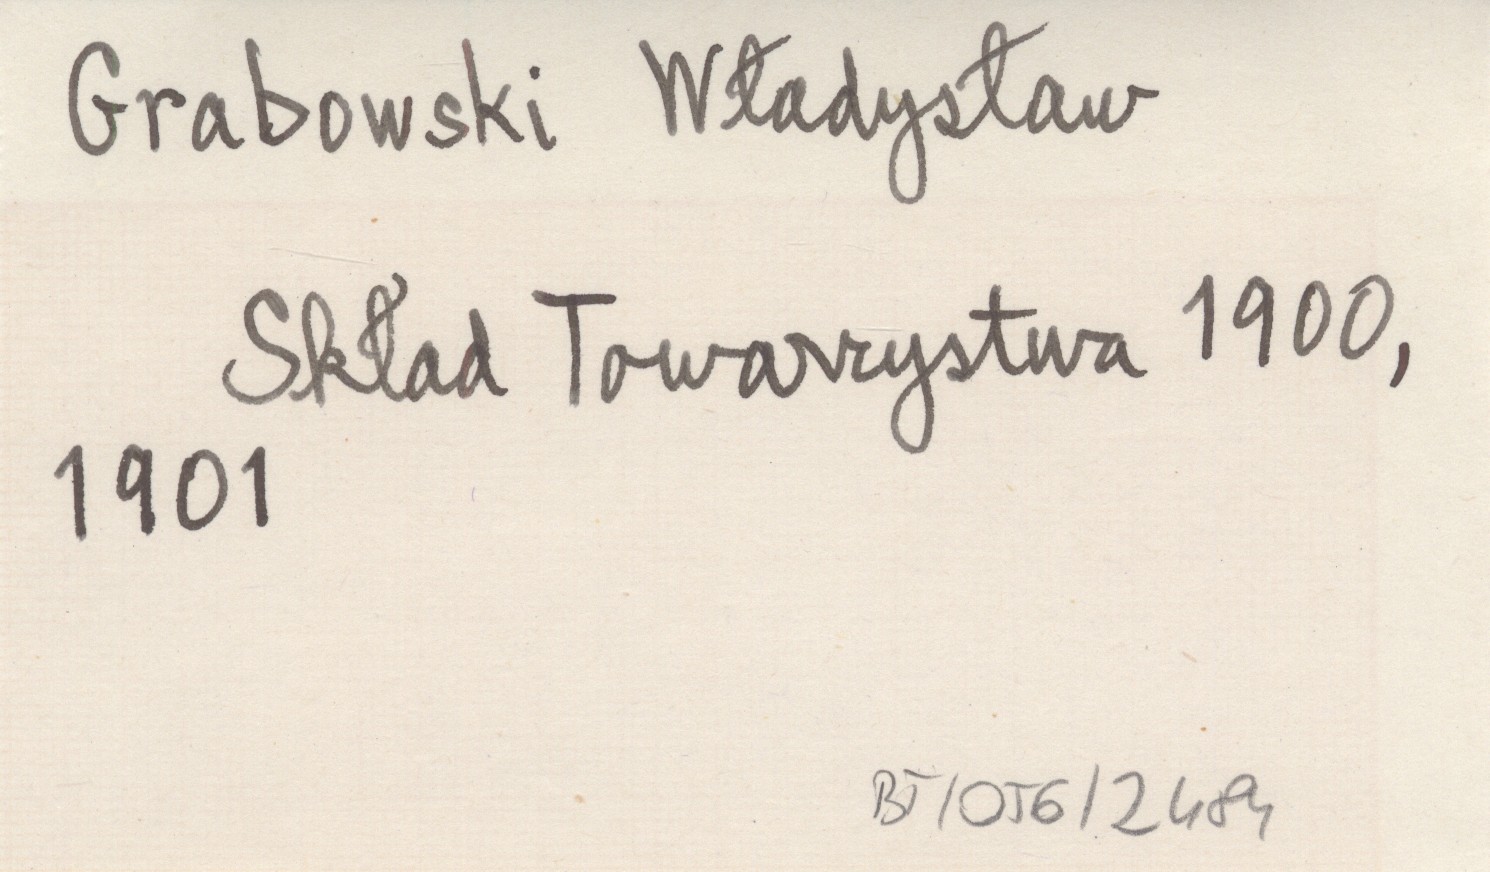 Grabowski Władysław
Skład Towarzystwa 1900,
1901
BT/OJG/2484